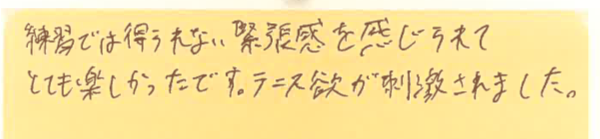 練習では得られない緊張感を感じられて
とても楽しかったです。テニス欲が刺激されました。